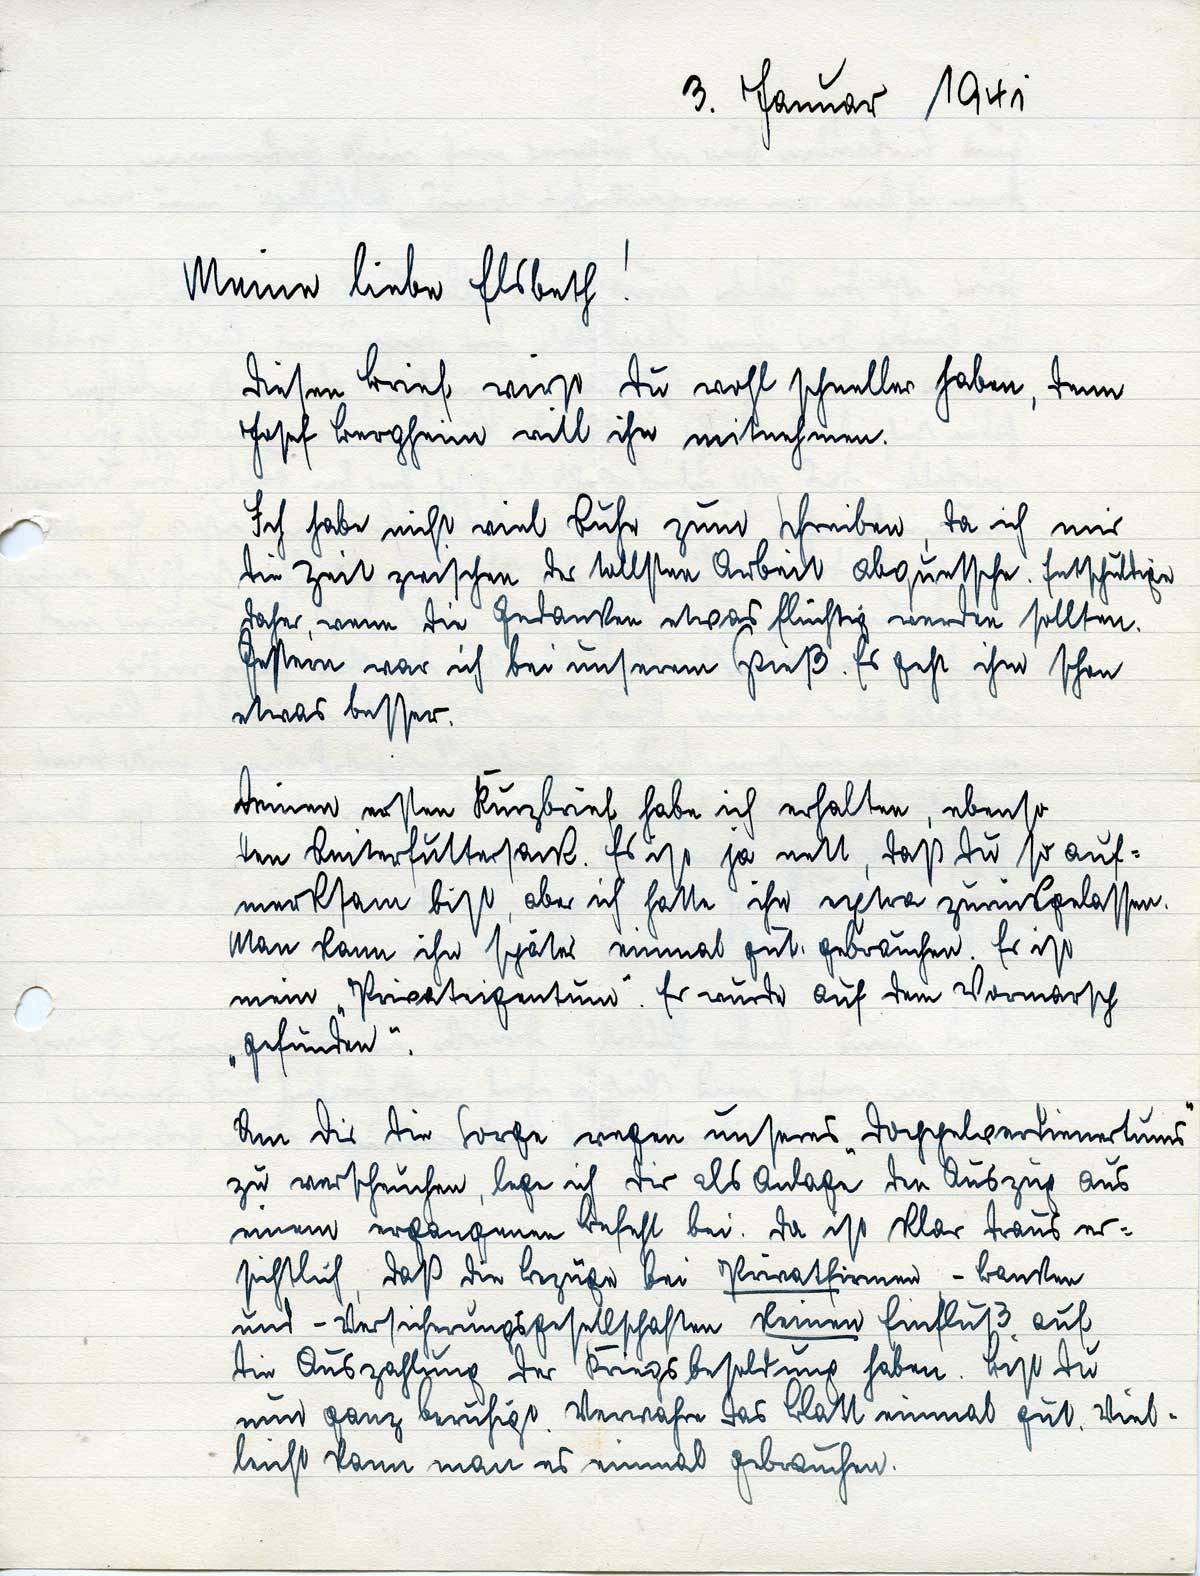 3. Januar 1941
Meine liebe Elsbeth!
Diesen Brief wirst Du wohl schneller haben, denn
Josef Bergheim will ihn mitnehmen.
Ich habe nicht viel Ruhe zum Schreiben, da ich mir
die Zeit zwischen der tollsten Arbeit abquetsche. Entschuldige
daher, wenn die Gedanken etwas flüchtig werden sollten.
Gestern war ich bei unserem Spieß. Es geht ihm schon
etwas besser.
Deinen ersten Kurzbrief habe ich erhalten, ebenso
den Reiterfuttersack. Es ist ja nett, daß Du so auf-
merksam bist, aber ich hatte ihn extra zurückgelassen.
Man kann ihn später einmal gut gebrauchen. Er ist
mein „Privateigentum“. Er wurde auf dem Vormarsch
„gefunden“.
Um Dir die Sorge wegen unseres „Doppelverdienertums“
zu verscheuchen, lege ich Dir als Anlage den Auszug aus
einem ergangenen Befehl bei. Da ist klar draus er-
sichtlich, daß die Bezüge bei Privatfirmen, -Banken
und -Versicherungsgesellschaften keinen Einfluß auf
die Auszahlung der Kriegsbesoldung haben. Bist Du
nun ganz beruhigt. Verwahre das Blatt einmal gut. Viel-
leicht kann man es einmal gebrauchen.